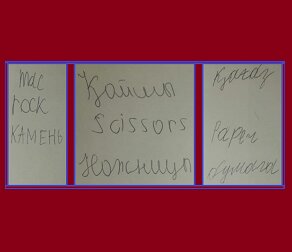 тас
rock
КАМЕНЬ
Қайшы
Scissors
Ножницы
Қағаз
Paper
бумага